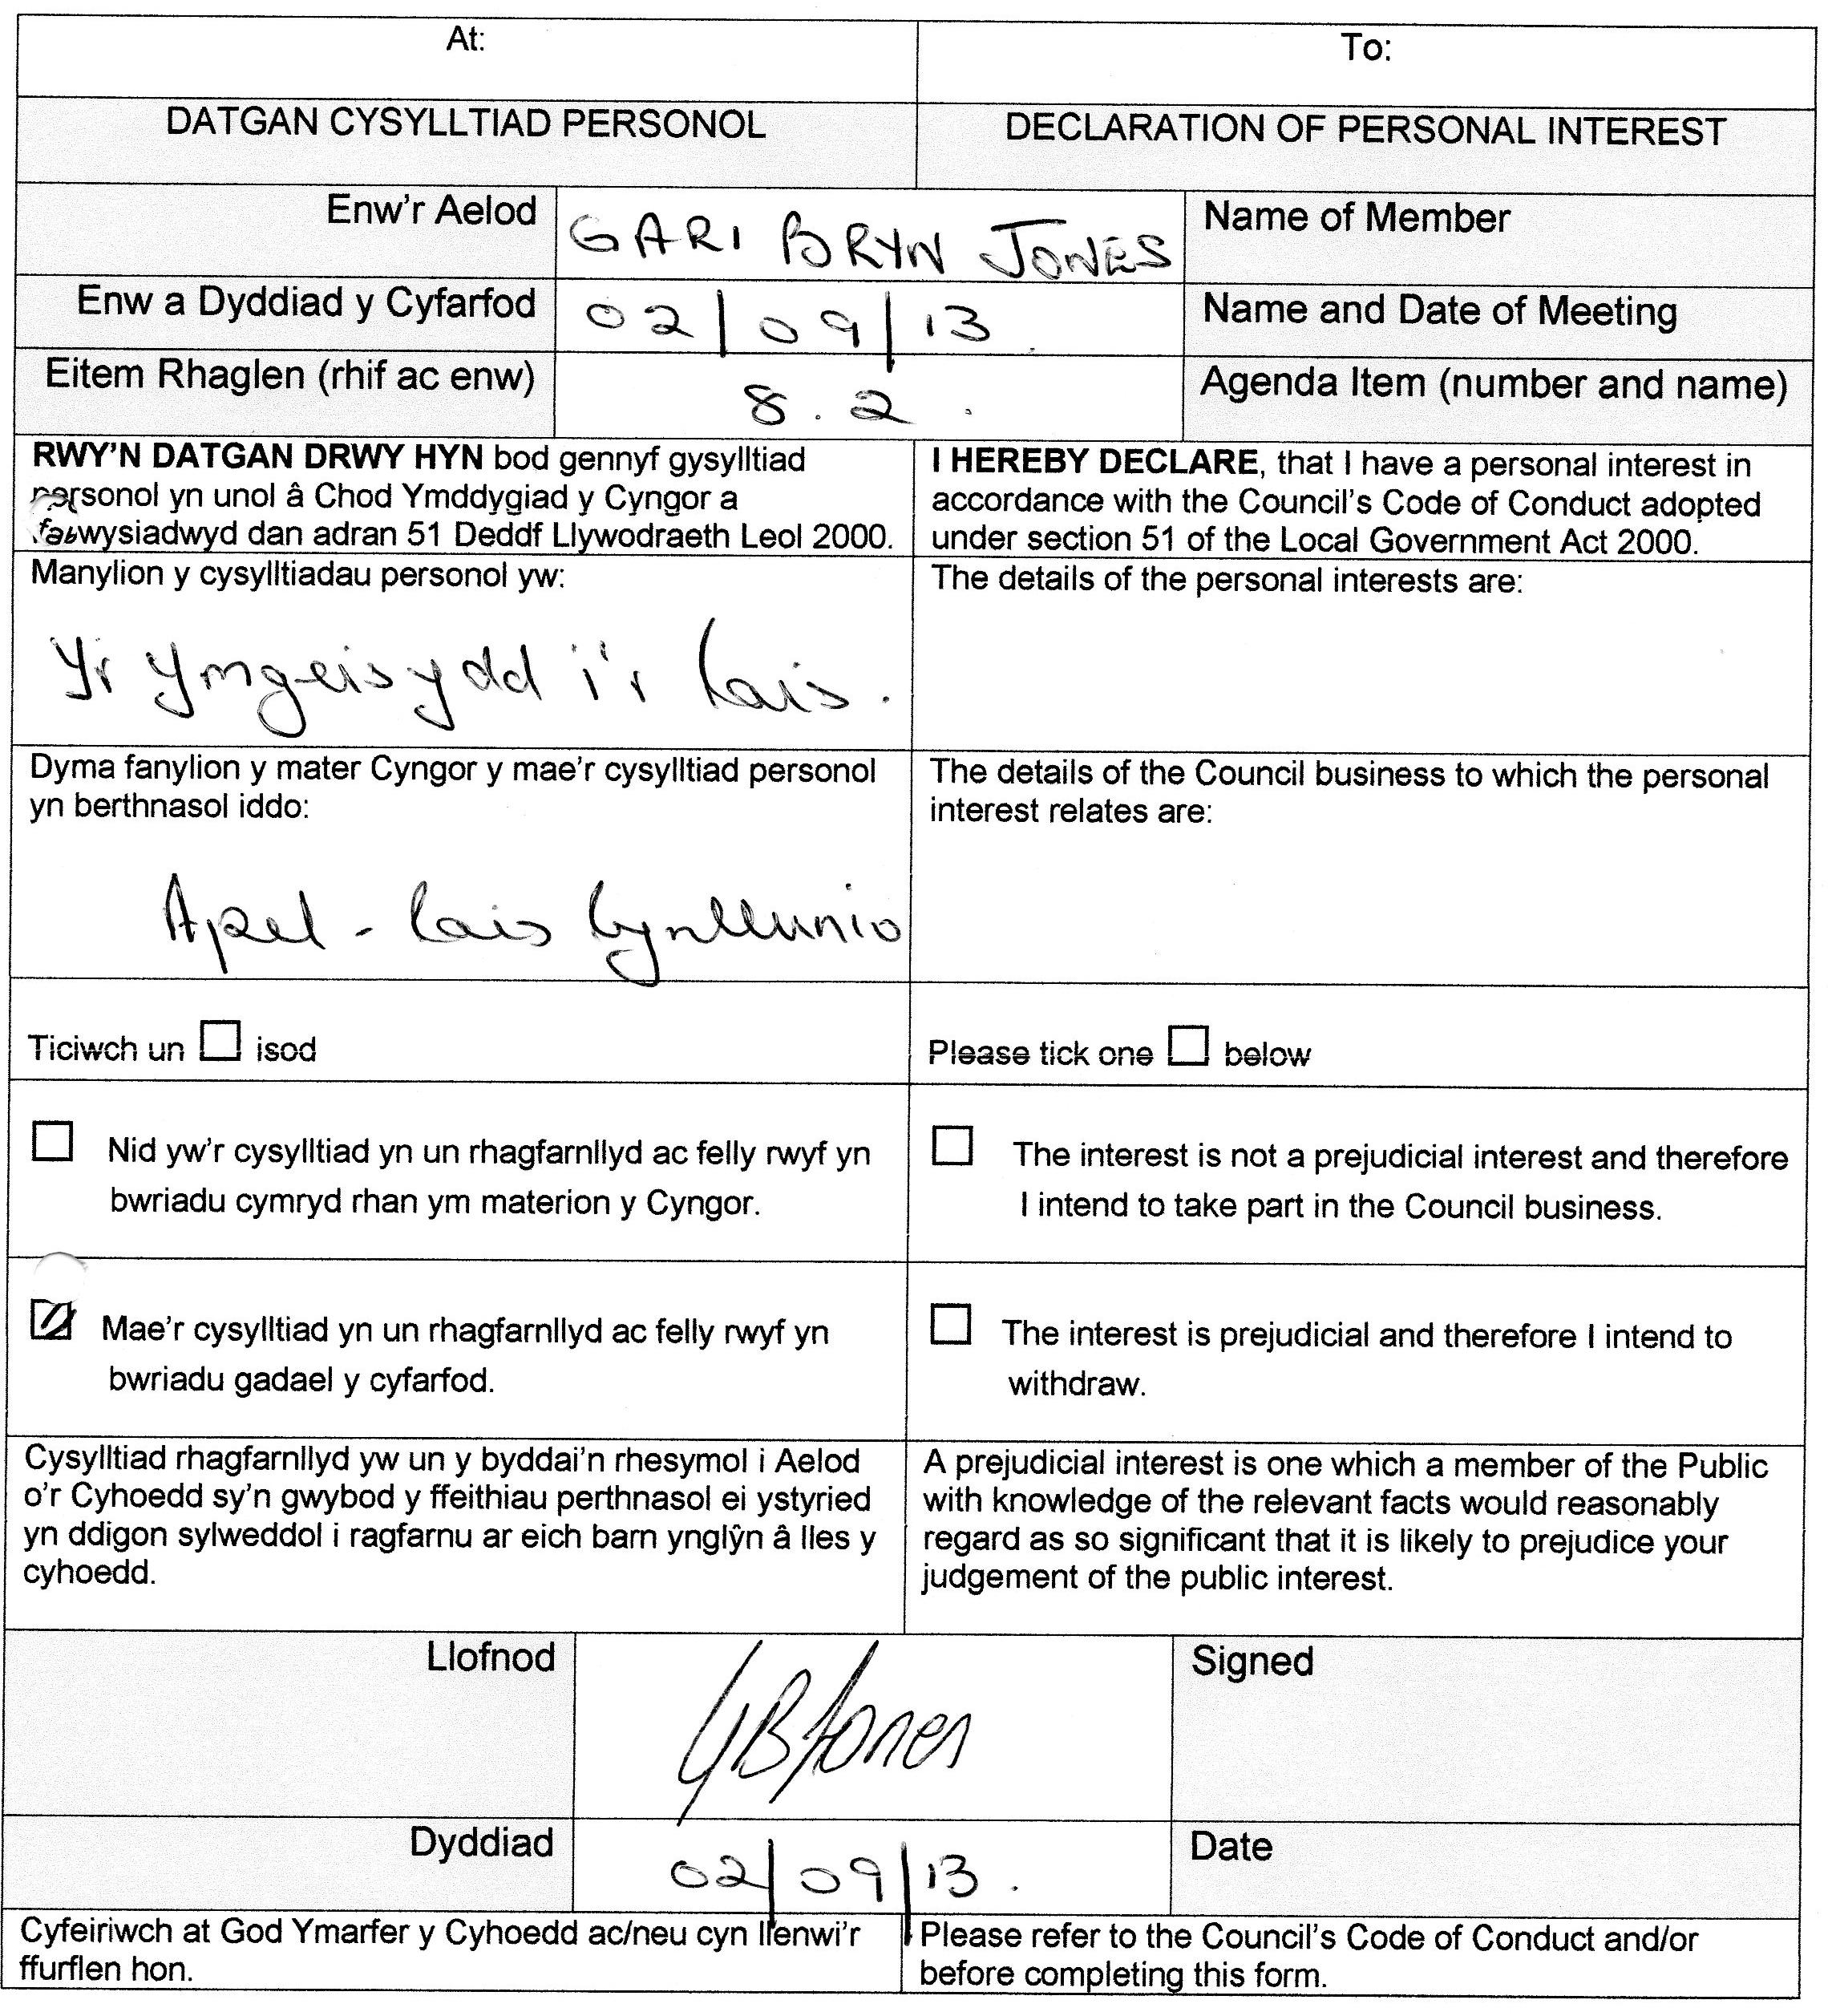 At:
To:
DATGAN CYSYLLTIAD PERSONOL
DECLARATION OF PERSONAL INTEREST
Enw'r Aelod
GARI BRYN JONES
Name of Member
Enw a Dyddiad y Cyfarfod
02/09/13
Name and Date of Meeting
Eitem Rhaglen (rhif ac enw)
8.2.
Agenda Item (number and name)
RWY'N DATGAN DRWY HYN bod gennyf gysylltiad
personol yn unol â Chod Ymddygiad y Cyngor a
fabwysiadwyd dan adran 51 Deddf Llywodraeth Leol 2000.
I HEREBY DECLARE, that I have a personal interest in
accordance with the Council's Code of Conduct adopted
under section 51 of the Local Government Act 2000.
Manylion y cysylltiadau personol yw:
Yr Ymgeisydd i'r Cais.
The details of the personal interests are:
Dyma fanylion y mater Cyngor y mae'r cysylltiad personol
yn berthnasol iddo:
Apel - Cais Cynllunio
The details of the Council business to which the personal
interest relates are:
Ticiwch un ☐ isod
Please tick one ☐ below
☐ Nid yw'r cysylltiad yn un rhagfarnllyd ac felly rwyf yn
bwriadu cymryd rhan ym materion y Cyngor.
☐ The interest is not a prejudicial interest and therefore
I intend to take part in the Council business.
☑ Mae'r cysylltiad yn un rhagfarnllyd ac felly rwyf yn
bwriadu gadael y cyfarfod.
☐ The interest is prejudicial and therefore I intend to
withdraw.
Cysylltiad rhagfarnllyd yw un y byddai'n rhesymol i Aelod
o'r Cyhoedd sy'n gwybod y ffeithiau perthnasol ei ystyried
yn ddigon sylweddol i ragfarnu ar eich barn ynglŷn â lles y
cyhoedd.
A prejudicial interest is one which a member of the Public
with knowledge of the relevant facts would reasonably
regard as so significant that it is likely to prejudice your
judgement of the public interest.
Llofnod
GB Jones
Signed
Dyddiad
02/09/13.
Date
Cyfeiriwch at God Ymarfer y Cyhoedd ac/neu cyn llenwi'r
ffurflen hon.
Please refer to the Council's Code of Conduct and/or
before completing this form.